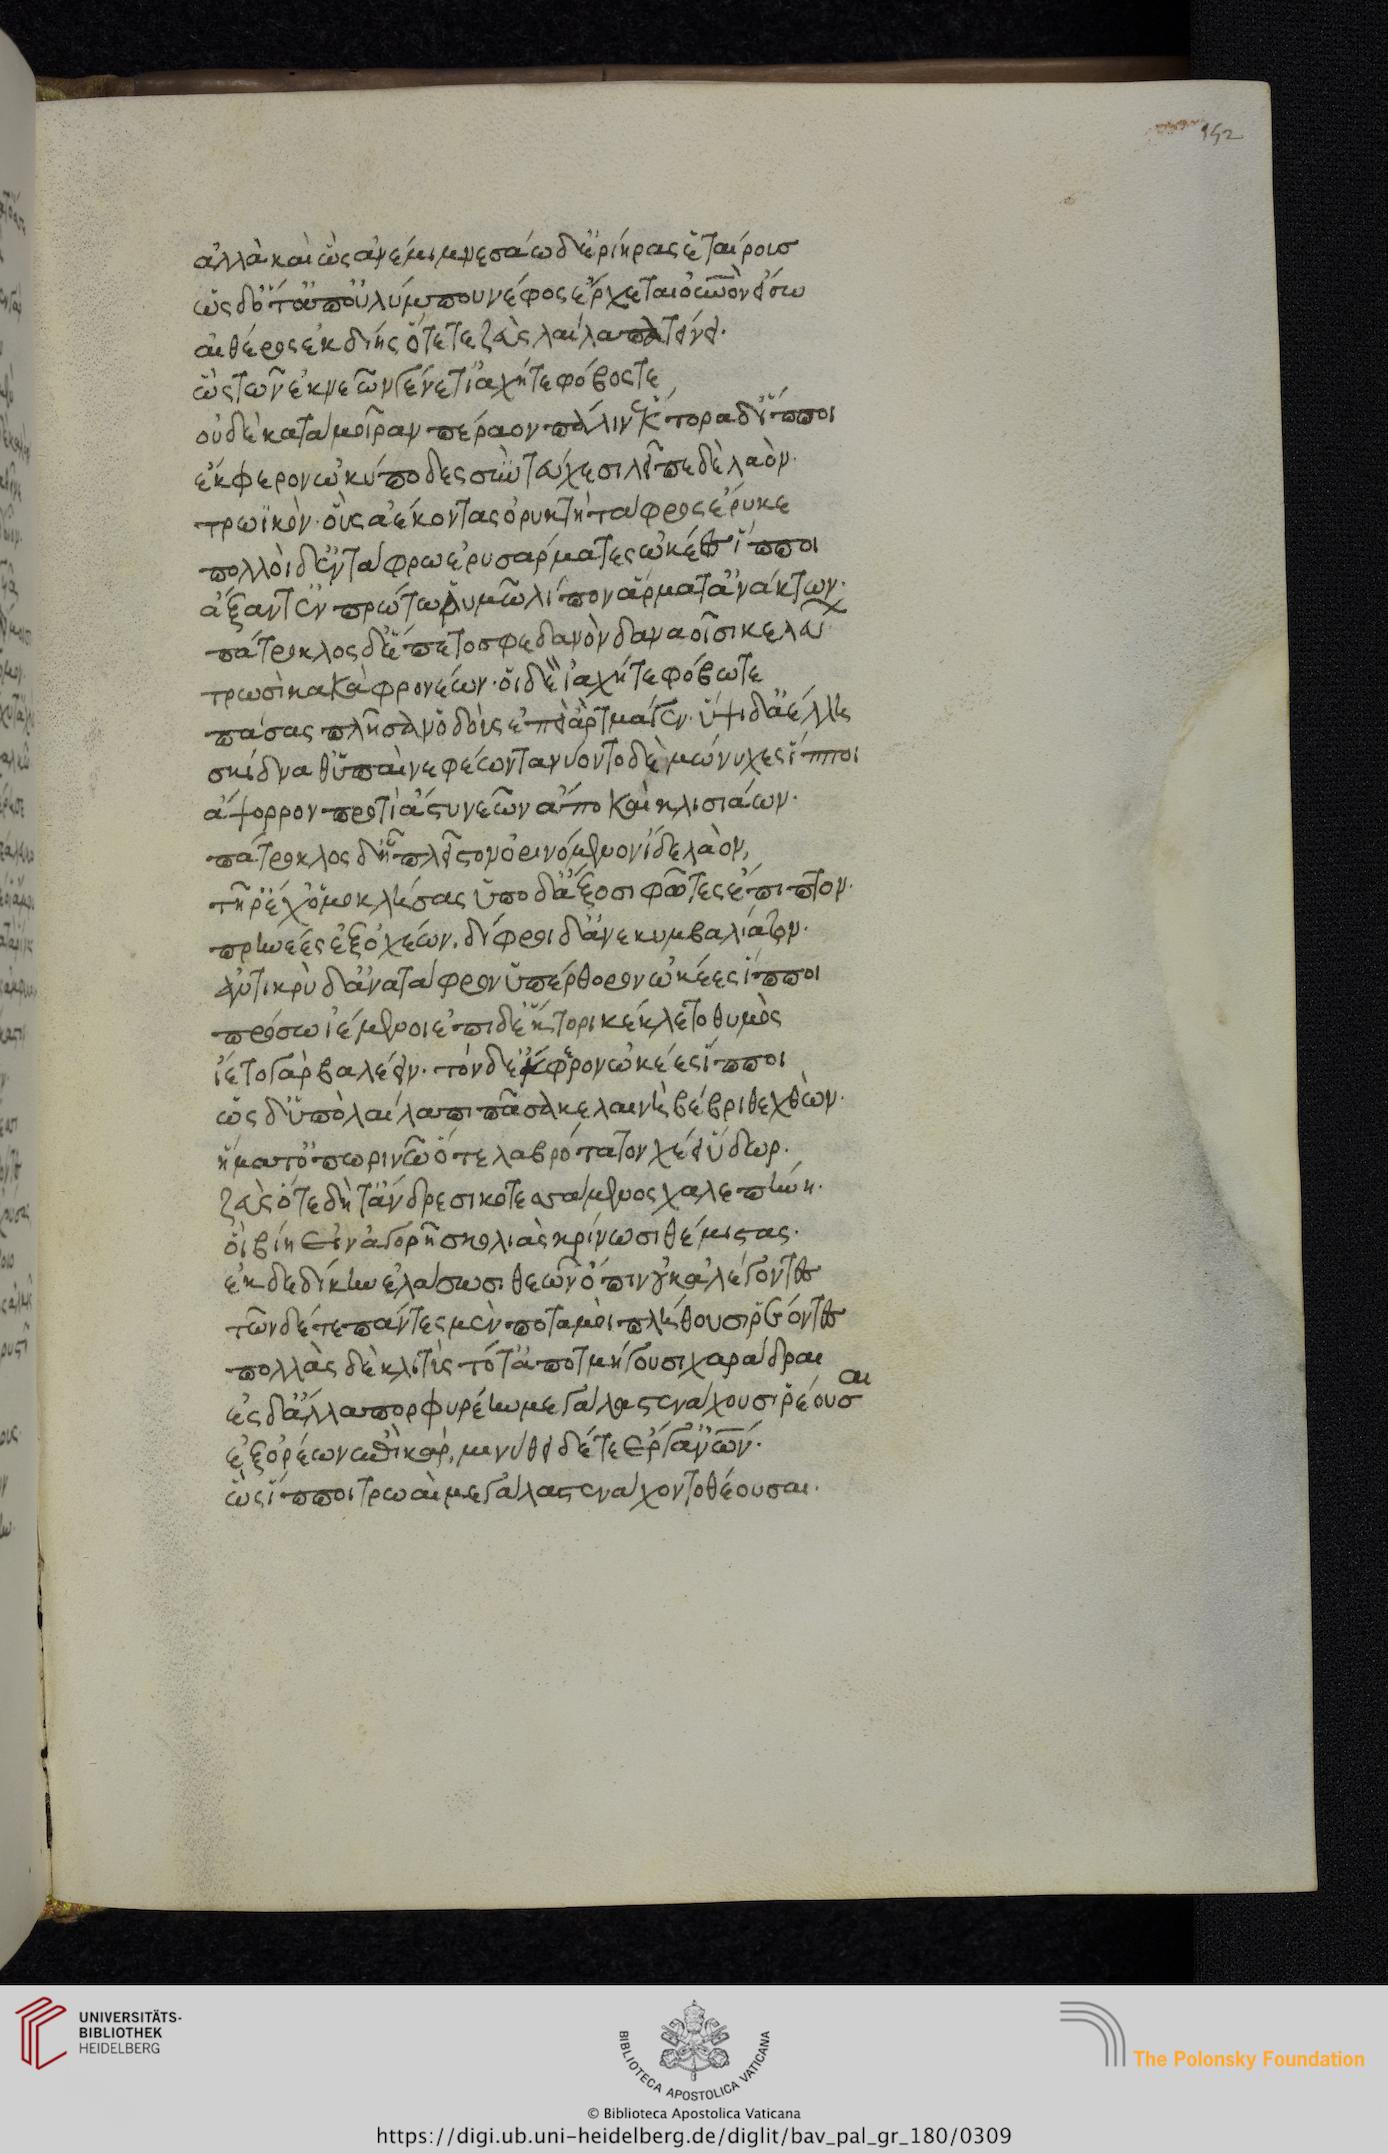 152
ἀλλὰ καὶ ὣς ἀνέμιμνε σάω δ' ἐρίηρας ἑταίρους
ὡς δ' ὅτ' ἀπ' οὐλύμπου νέφος ἔρχεται οὐρανὸν εἴσω
αἰθέρος ἐκ δίης ὅτε τε ζεὺς λαίλαπα τείνει.
ὣς τῶν ἐκ νεῶν γένετ' ἰαχή τε φόβος τε
οὐδὲ κατὰ μοῖραν πέραον πάλιν ἕκτορα δ' ἵπποι
ἔκφερον ὠκύποδες σὺν τεύχεσι λεῖπε δὲ λαὸν.
τρωϊκὸν. οὓς ἀέκοντας ὀρυκτὴ τάφρος ἔρυκε
πολλοὶ δ' ἐν τάφρω ἐρυσάρματες ὠκέες ἵπποι
ἄξαντ' ἐν πρώτω ῥυμῶ λίπον ἅρματ' ἀνάκτων.
πάτροκλος δ' ἕπετο σφεδανὸν δαναοῖσι κελεύων
τρωσὶ κακὰ φρονέων. οἱ δὲ ἰαχῇ τε φόβω τε
πάσας πλῆσαν ὁδοὺς ἐπεὶ ἂρ τμάγεν. ὕψι δ' ἀέλλης
σκίδναθ' ὑπαὶ νεφέων τανύοντο δὲ μώνυχες ἵπποι
ἄψορρον προτὶ ἄστυ νεῶν ἄπο καὶ κλισιάων.
πάτροκλος δ' ᾗ πλεῖστον ὀρινόμενον ἴδε λαὸν,
τῆ ῥ' ἔχ' ὁμοκλήσας ὑπὸ δ' ἄξοσι φῶτες ἔπιπτον.
πρηνέες ἐξ ὀχέων. δίφροι δ' ἀνεκυμβαλίαζον.
ἀντικρὺ δ' ἄρα τάφρον ὑπέρθορον ὠκέες ἵπποι
πρόσω ἱέμενοι ἐπὶ δ' ἕκτορι κέκλετο θυμὸς
ἵετο γὰρ βαλέειν. τὸν δ' ἔκφερον ὠκέες ἵπποι
ὡς δ' ὑπὸ λαίλαπι πᾶσα κελαινὴ βέβριθε χθὼν.
ἤματ' ὀπωρινῶ ὅτε λαβρότατον χέει ὕδωρ.
ζεὺς ὅτε δή τ' ἄνδρεσι κοτεσσάμενος χαλεπήνη.
οἳ βίη εἰν ἀγορῆ σκολιὰς κρίνωσι θέμιστας.
ἐκ δὲ δίκην ἐλάσωσι θεῶν ὄπιν οὐκ ἀλέγοντες
τῶν δέ τε πάντες μὲν ποταμοὶ πλήθουσι ῥέοντες
πολλὰς δὲ κλιτῦς τότ' ἀποτμήγουσι χαράδραι
ἐς δ' ἅλα πορφυρέην μεγάλα στενάχουσι ῥέουσαι
ἐξ ὀρέων ἐπὶ κὰρ, μινύθει δέ τε ἔργ' ἀνθρώπων.
ὣς ἵπποι τρωαὶ μεγάλα στενάχοντο θέουσαι.
UNIVERSITÄTS-
BIBLIOTHEK
HEIDELBERG
BIBLIOTECA APOSTOLICA VATICANA
The Polonsky Foundation
© Biblioteca Apostolica Vaticana
https://digi.ub.uni-heidelberg.de/diglit/bav_pal_gr_180/0309